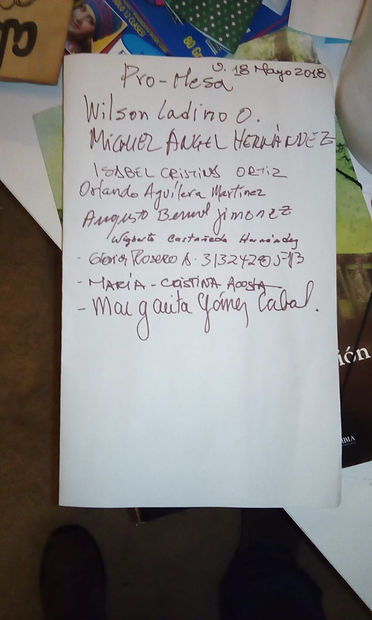 V. 18 Mayo 2018
Pro-Mesa
Wilson Ladino O.
MIGUEL ANGEL HERNÁNDEZ
ISABEL CRISTINA ORTIZ
Orlando Aguilera Martinez
Augusto Bernal Jimenez
Wigberto Castañeda Hernández
- Gloria Rosero A. 3132420
- MARÍA - CRISTINA ACOSTA
- Margarita Gómez Cabal.
ión
BIA